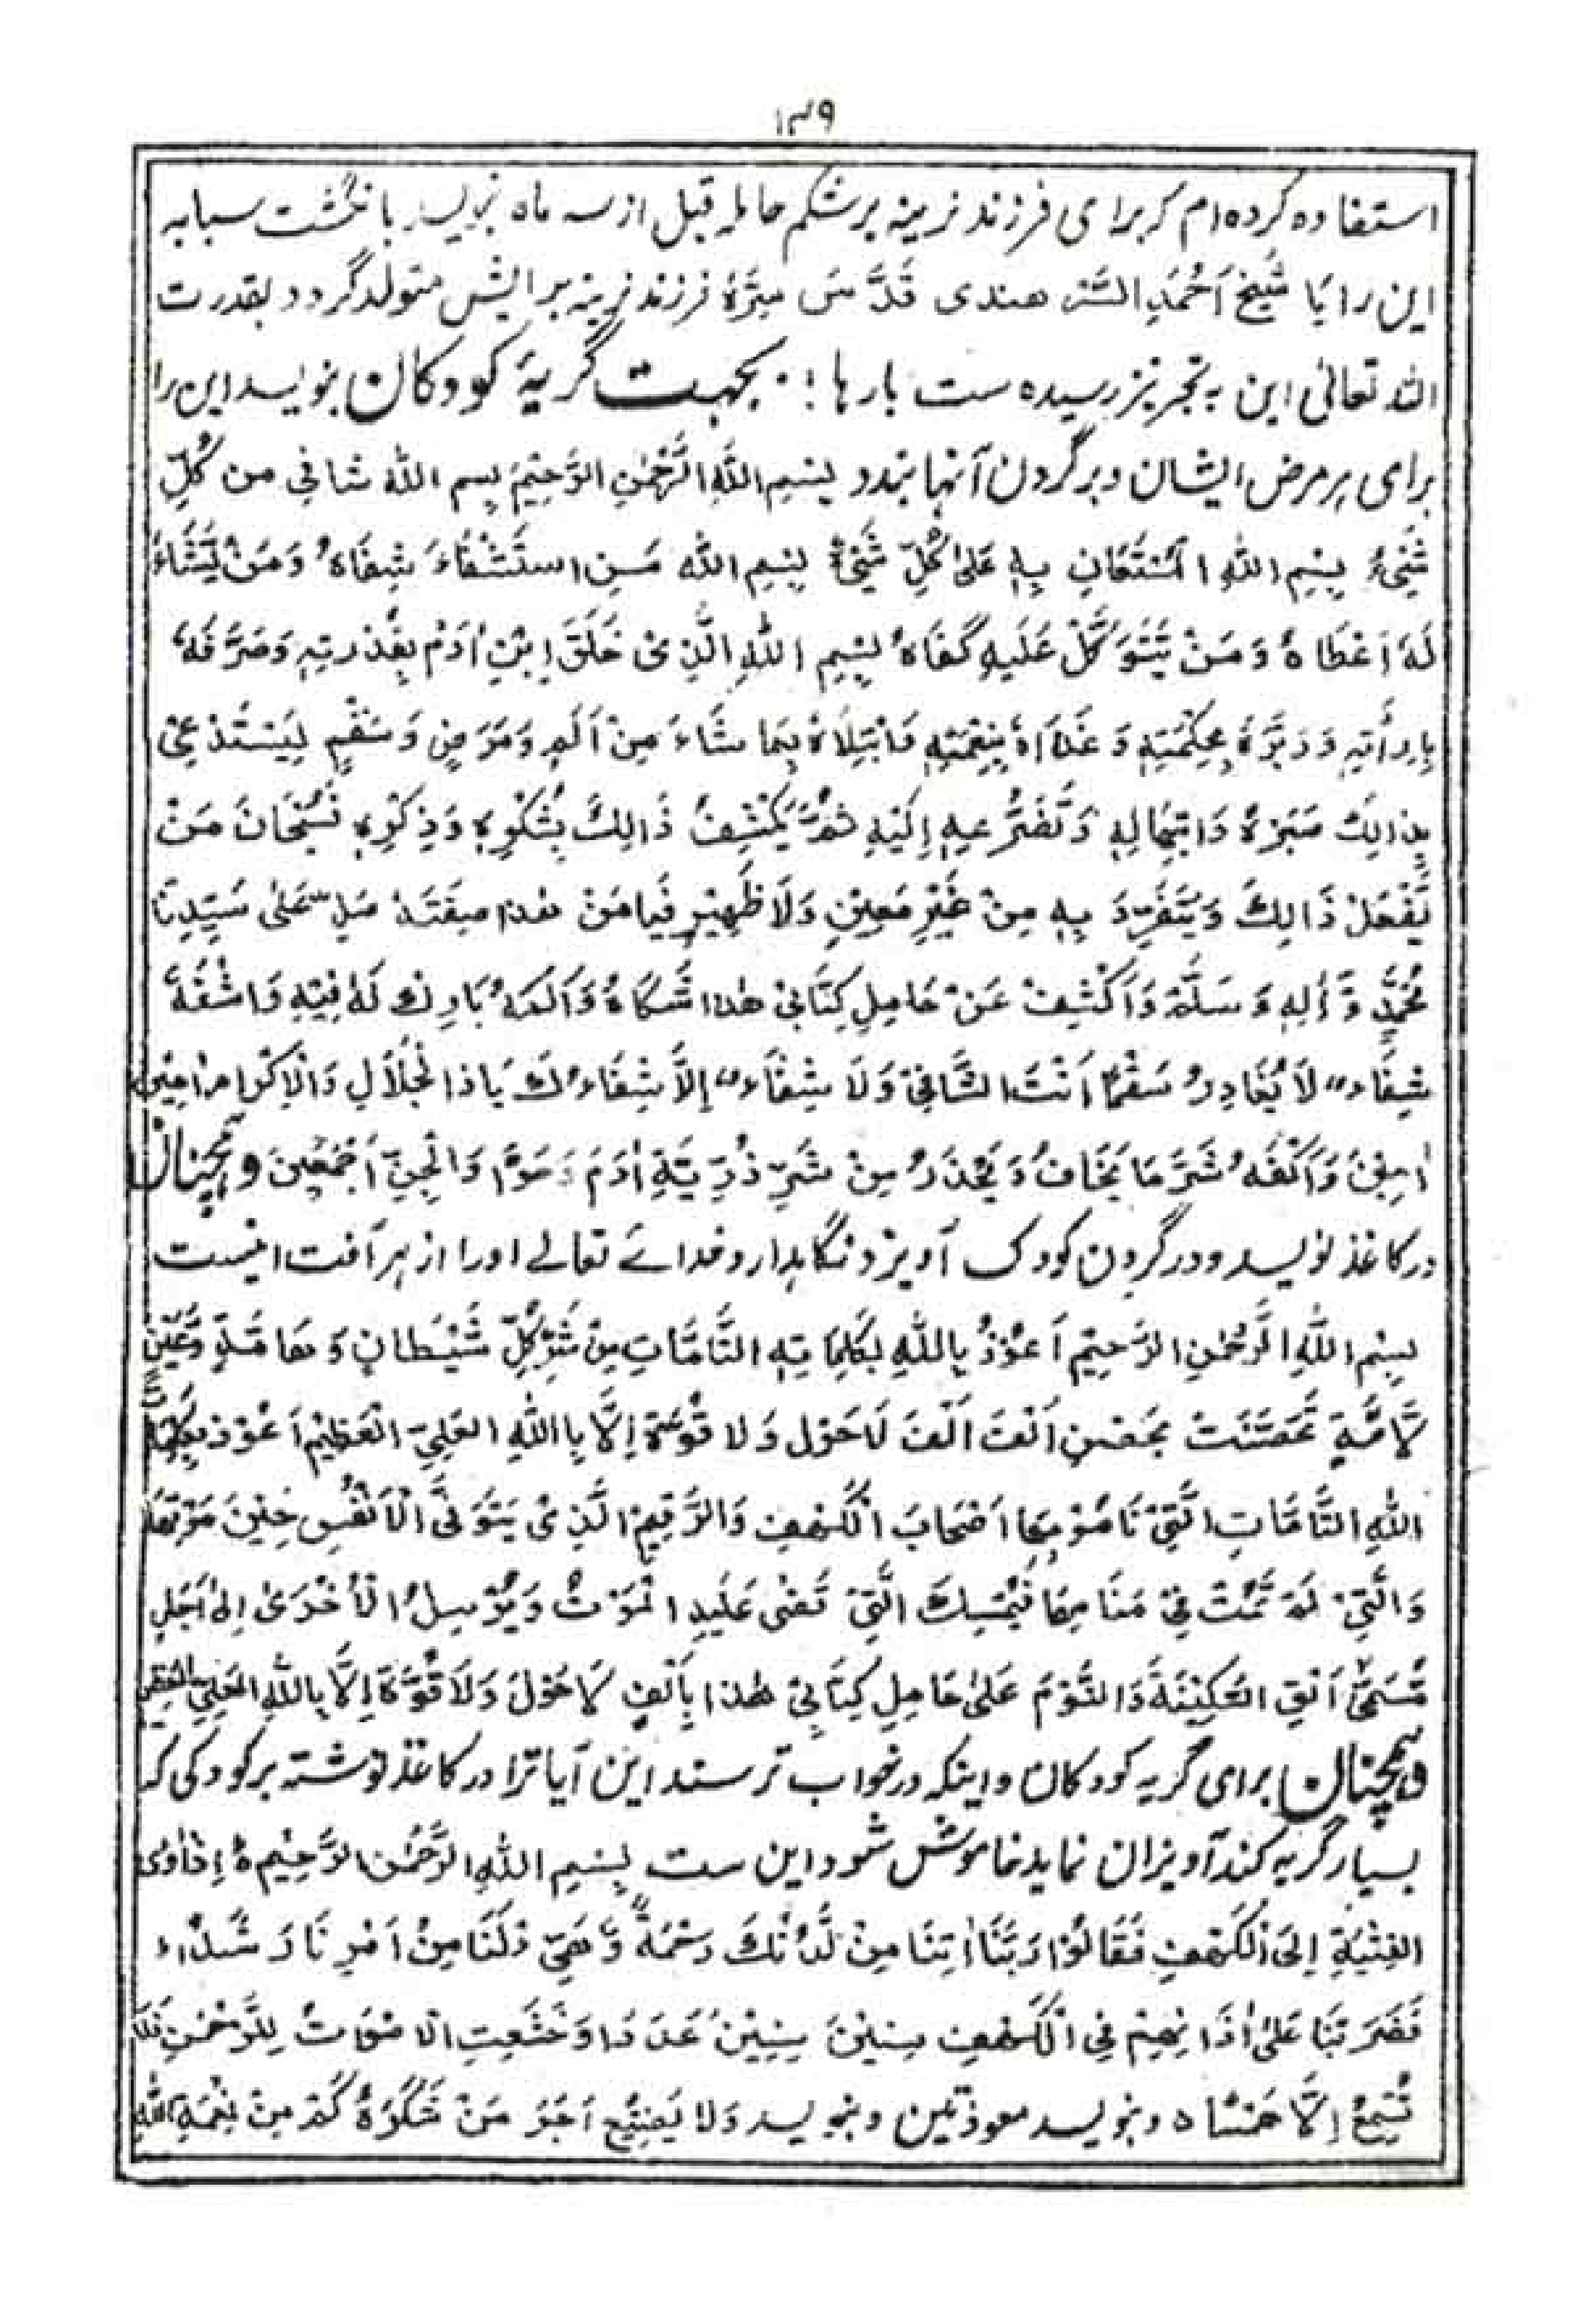 ۱۳۹
استفاده کرده ام که برای فرزند نرینه بر شکم حامله قبل از سه ماه بنویسد بانگشت سبابه
این را یَا شَیخ اَحْمَدِ السَّر هندی قَدَّسَ سِرَّهٗ فرزند نرینه برایش متولد گردد بقدرت
الله تعالیٰ این به تجربه نیز رسیده ست بارها ! . بجهت گریهٔ کودکان بنویسد این را
برای هر مرض ایشان و بر گردن آنها بندد بِسْمِ اللّٰهِ الرَّحْمٰنِ الرَّحِیْمِ بِسم اللّٰه شافی من کُلِّ
شَیْءٍ بِسْمِ اللّٰهِ الْمُسْتَعَانِ بِهٖ عَلیٰ کُلِّ شَیْءٍ بِسْمِ اللّٰه مَنِ اسْتَشْفَاءَ شِفَاهُ وَمَنْ یَّشَاءُ
لَهٗ اَعْطَاهُ وَ مَنْ یَّتَوَکَّلْ عَلَیهِ کَفَاهُ بِسْمِ اللّٰهِ الَّذِیْ خَلَقَ اِبْنِ اٰدَمْ بِقُدْرَتِهٖ وَصَرَّفَهٗ
بِارِدَأتِهٖ وَدَبَّرَهٗ بِحِکْمَتِهٖ وَ غَذَاهُ بِنِعْمَتِهٖ فَابْتِلَاهُ بِمَا شَاءَ مِنْ اَلَمٍ وَمَرَضٍ وَ سَقْمٍ لِیَسْتَدْعِیْ
بِذَالِكَ صَبَرَهٗ وَابْتِهَالِهٖ وَتَّضَرُّعِهٖ اِلَیْهِ ثُمَّ یَکْشِفُ ذَالِكَ بِشُکْرِهٖ وَذِکْرِهٖ فَسُبْحَانَ مَنْ
یَّفْعَلْ ذَالِكَ وَیَتَفَرِّدَ بِهٖ مِنْ غَیْرِ مُعِیْنٍ وَلَا ظَهِیْرٍ فَیَامَنْ هٰذا صِفَتَهٗ صَلِّ عَلٰی سَیِّدِنَا
مُحَمَّدٍ وَّ اٰلِهٖ وَسَلَّمْ وَاَکْشِفْ عَنْ حَامِلِ کِتَابِیْ هٰذا شَکَاهُ وَاَلَمَهُ بَارِكْ لَهٗ فِیْهِ وَاشْفَهٗ
شِفَاءً لَا یُغَادِرُ سَقْمًا اَنْتَ الشَّافِیْ وَلَا شِفَاءً اِلَّا شِفَاءُكَ یَا ذَا الْجَلَالِ وَالْاِکْرَامِ اٰمِیْن
اٰمِیْنَ وَاَکْفَهُ شَرَّ مَا یَخَافُ وَیَحْذَرُ مِنْ شَرِّ ذُرِّیَّةِ اٰدَمَ وَحَوَّا وَالْجِنِّ اَجْمَعِیْنَ و همچنان
در کاغذ نویسد و در گردن کودک آویزد نگاہدارد خدائے تعالے اورا از ہر آفت اینست
بِسْمِ اللّٰهِ الرَّحْمٰنِ الرَّحِیْمِ اَعُوْذُ بِاللّٰهِ بِکَلِمَاتِهِ التَّامَّاتِ مِنْ شَرِّ کُلِّ شَیْطَانٍ وَ هَامَّةٍ وَّعَیْنٍ
لَامَّةٍ تَحَصَّنَتُ بِحَصْنِ اَلْفَ اَلْفَ لَاحَوْل وَلَا قُوَّةَ اِلَّا بِاللّٰهِ العَلِیِّ الْعَظِیْمِ اَعُوْذُ بِکَلِمَاتِ
اللّٰهِ التَّامَّاتِ الَّتِیْ نَامُوْ بِهَا اَصْحَابَ الْکَهْفِ وَالرَّقِیْمِ الَّذِیْ یَتَوَفَّی الْاَنْفُسِ حِیْنَ مَوْتِهَا
وَالَّتِیْ لَمْ تَمُتْ فِیْ مَنَامِهَا فَیُمْسِكَ الَّتِیْ قَضٰی عَلَیهِ الْمَوْتُ وَیُرْسِلُ الْاُخْرَیٰ اِلیٰ اَجَلٍ
مُّسَمًّی اَلْقِ السَّکِیْنَةَ وَالنَّوْمَ عَلیٰ حَامِلِ کِتَابِیْ هٰذا بِاَلْفِ لَاحَوْلَ وَلَا قُوَّةَ اِلَّا بِاللّٰهِ الْعَلِیِّ الْعَظِیْمِ
و همچنان برای گریه کودکان و اینکه در خواب ترسند این آیات را در کاغذ نوشته بر کودکی که
بسیار گریه کند آویزان نماید خاموش شود این ست بِسْمِ اللّٰهِ الرَّحْمٰنِ الرَّحِیْمِ ہ اِذْ اَوَی
الفِتْیَةِ اِلَی الْکَهْفِ فَقَالُوْا رَبَّنَا اٰتِنَا مِنْ لَّدُنْكَ رَحْمَةً وَّهَیِّ ءْ لَنَا مِنْ اَمْرِنَا رَشَدًا
فَضَرَبْنَا عَلیٰ اٰذَانِهِمْ فِی الْکَهْفِ سِنِیْنَ سِنِیْنَ عَدَدًا وَخَشَعَتِ الْاَصْوَاتُ لِلرَّحْمٰنِ فَلَا
تَسْمَعُ اِلَّا هَمْسًا ہ و بنویسد معوذتین و بنویسد وَلَا یُضِیْعُ اَجْرَ مَنْ شَکَرَهٗ کَمْ مِنْ نِعْمَةِ اللّٰهِ